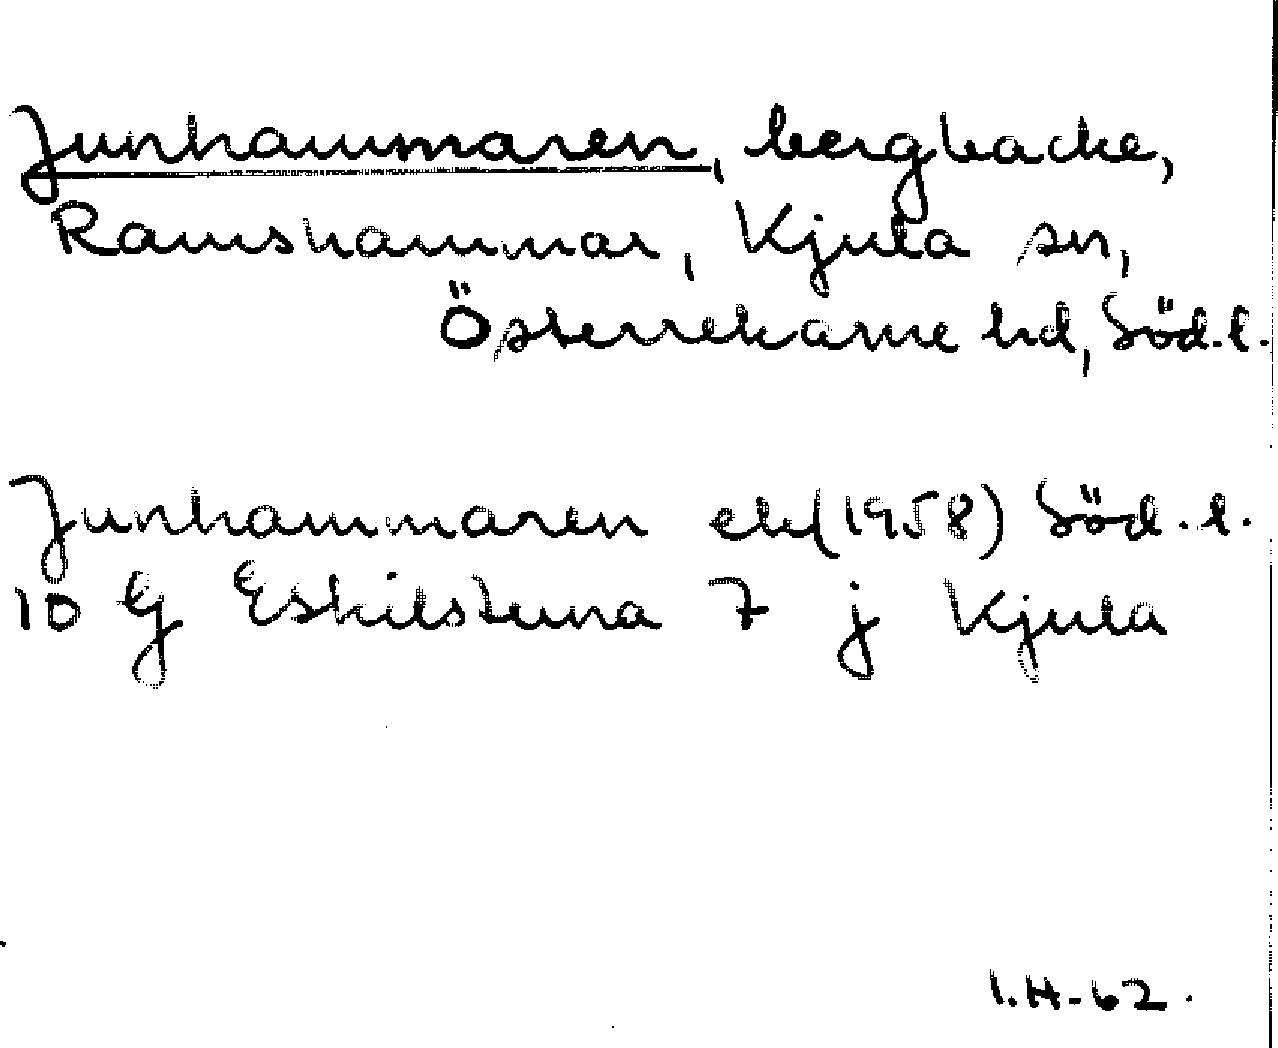 Junhammaren, bergbacke,
Ramshammar, Kjula sn,
Österrekarne hd, Söd.l.
Junhammaren ek (1958) Söd.l.
10 G Eskilstuna 7 j Kjula
I.H-62.